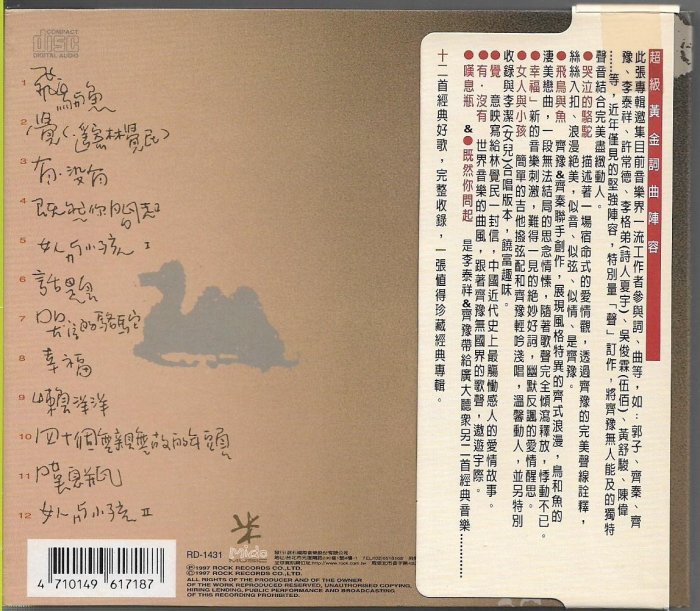 COMPACT
disc
DIGITAL AUDIO
1 飛鳥與魚
2 覺(遙寄林覺民)
3 有·沒有
4 既然你問起
5 女人與小孩 I
6 話題
7 哭泣的駱駝
8 幸福
9 懶洋洋
10 四十個無親無故的年頭
11 嘆息瓶
12 女人與小孩 II
4 710149 617187
RD-1431
Mido
MUSIC
℗1997 ROCK RECORDS CO.,LTD.
©1997 ROCK RECORDS CO.,LTD.
ALL RIGHTS OF THE PRODUCER AND OF THE OWNER
OF THE WORK REPRODUCED RESERVED, UNAUTHORISED COPYING,
HIRING LENDING, PUBLIC PERFORMANCE AND BROADCASTING
OF THIS RECORDING PROHIBITED.
超級黃金詞曲陣容
此張專輯邀集目前音樂界一流工作者參與詞、曲等,如:郭子、齊秦、齊
豫、李泰祥、許常德、李格弟(詩人夏宇)、吳俊霖(伍佰)、黃舒駿、陳偉
……等,近年僅見的堅強陣容,特別量「聲」訂作,將齊豫無人能及的獨特
聲音結合完美盡緻動人。
●哭泣的駱駝 描述著一場宿命式的愛情觀,透過齊豫的完美聲線詮釋,
絲絲入扣、浪漫絕美,似音、似弦、似情、是齊豫。
●飛鳥與魚 齊豫&齊秦聯手創作,展現風格特異的齊式浪漫,鳥和魚的
淒美戀曲,一段無法結局的思念情愫,隨著歌聲完全傾瀉釋放,悸動不已。
●幸福 「新」的音樂刺激,難得一見的絕妙好詞,幽默反諷的愛情醒思。
●女人與小孩 簡單的吉他撥弦配和齊豫輕吟淺唱,溫馨動人,並另特別
收錄與李潔(女兒)合唱版本,饒富趣味。
●覺 意映寫給林覺民一封信,中國近代史上最驅慟感人的愛情故事。
●有·沒有 世界音樂的曲風,跟著齊豫無國界的歌聲,遨遊宇際。
●嘆息瓶 &●既然你問起 是李泰祥&齊豫帶給廣大聽眾另二首經典音樂……
十二首經典好歌,完整收錄,一張值得珍藏經典專輯。